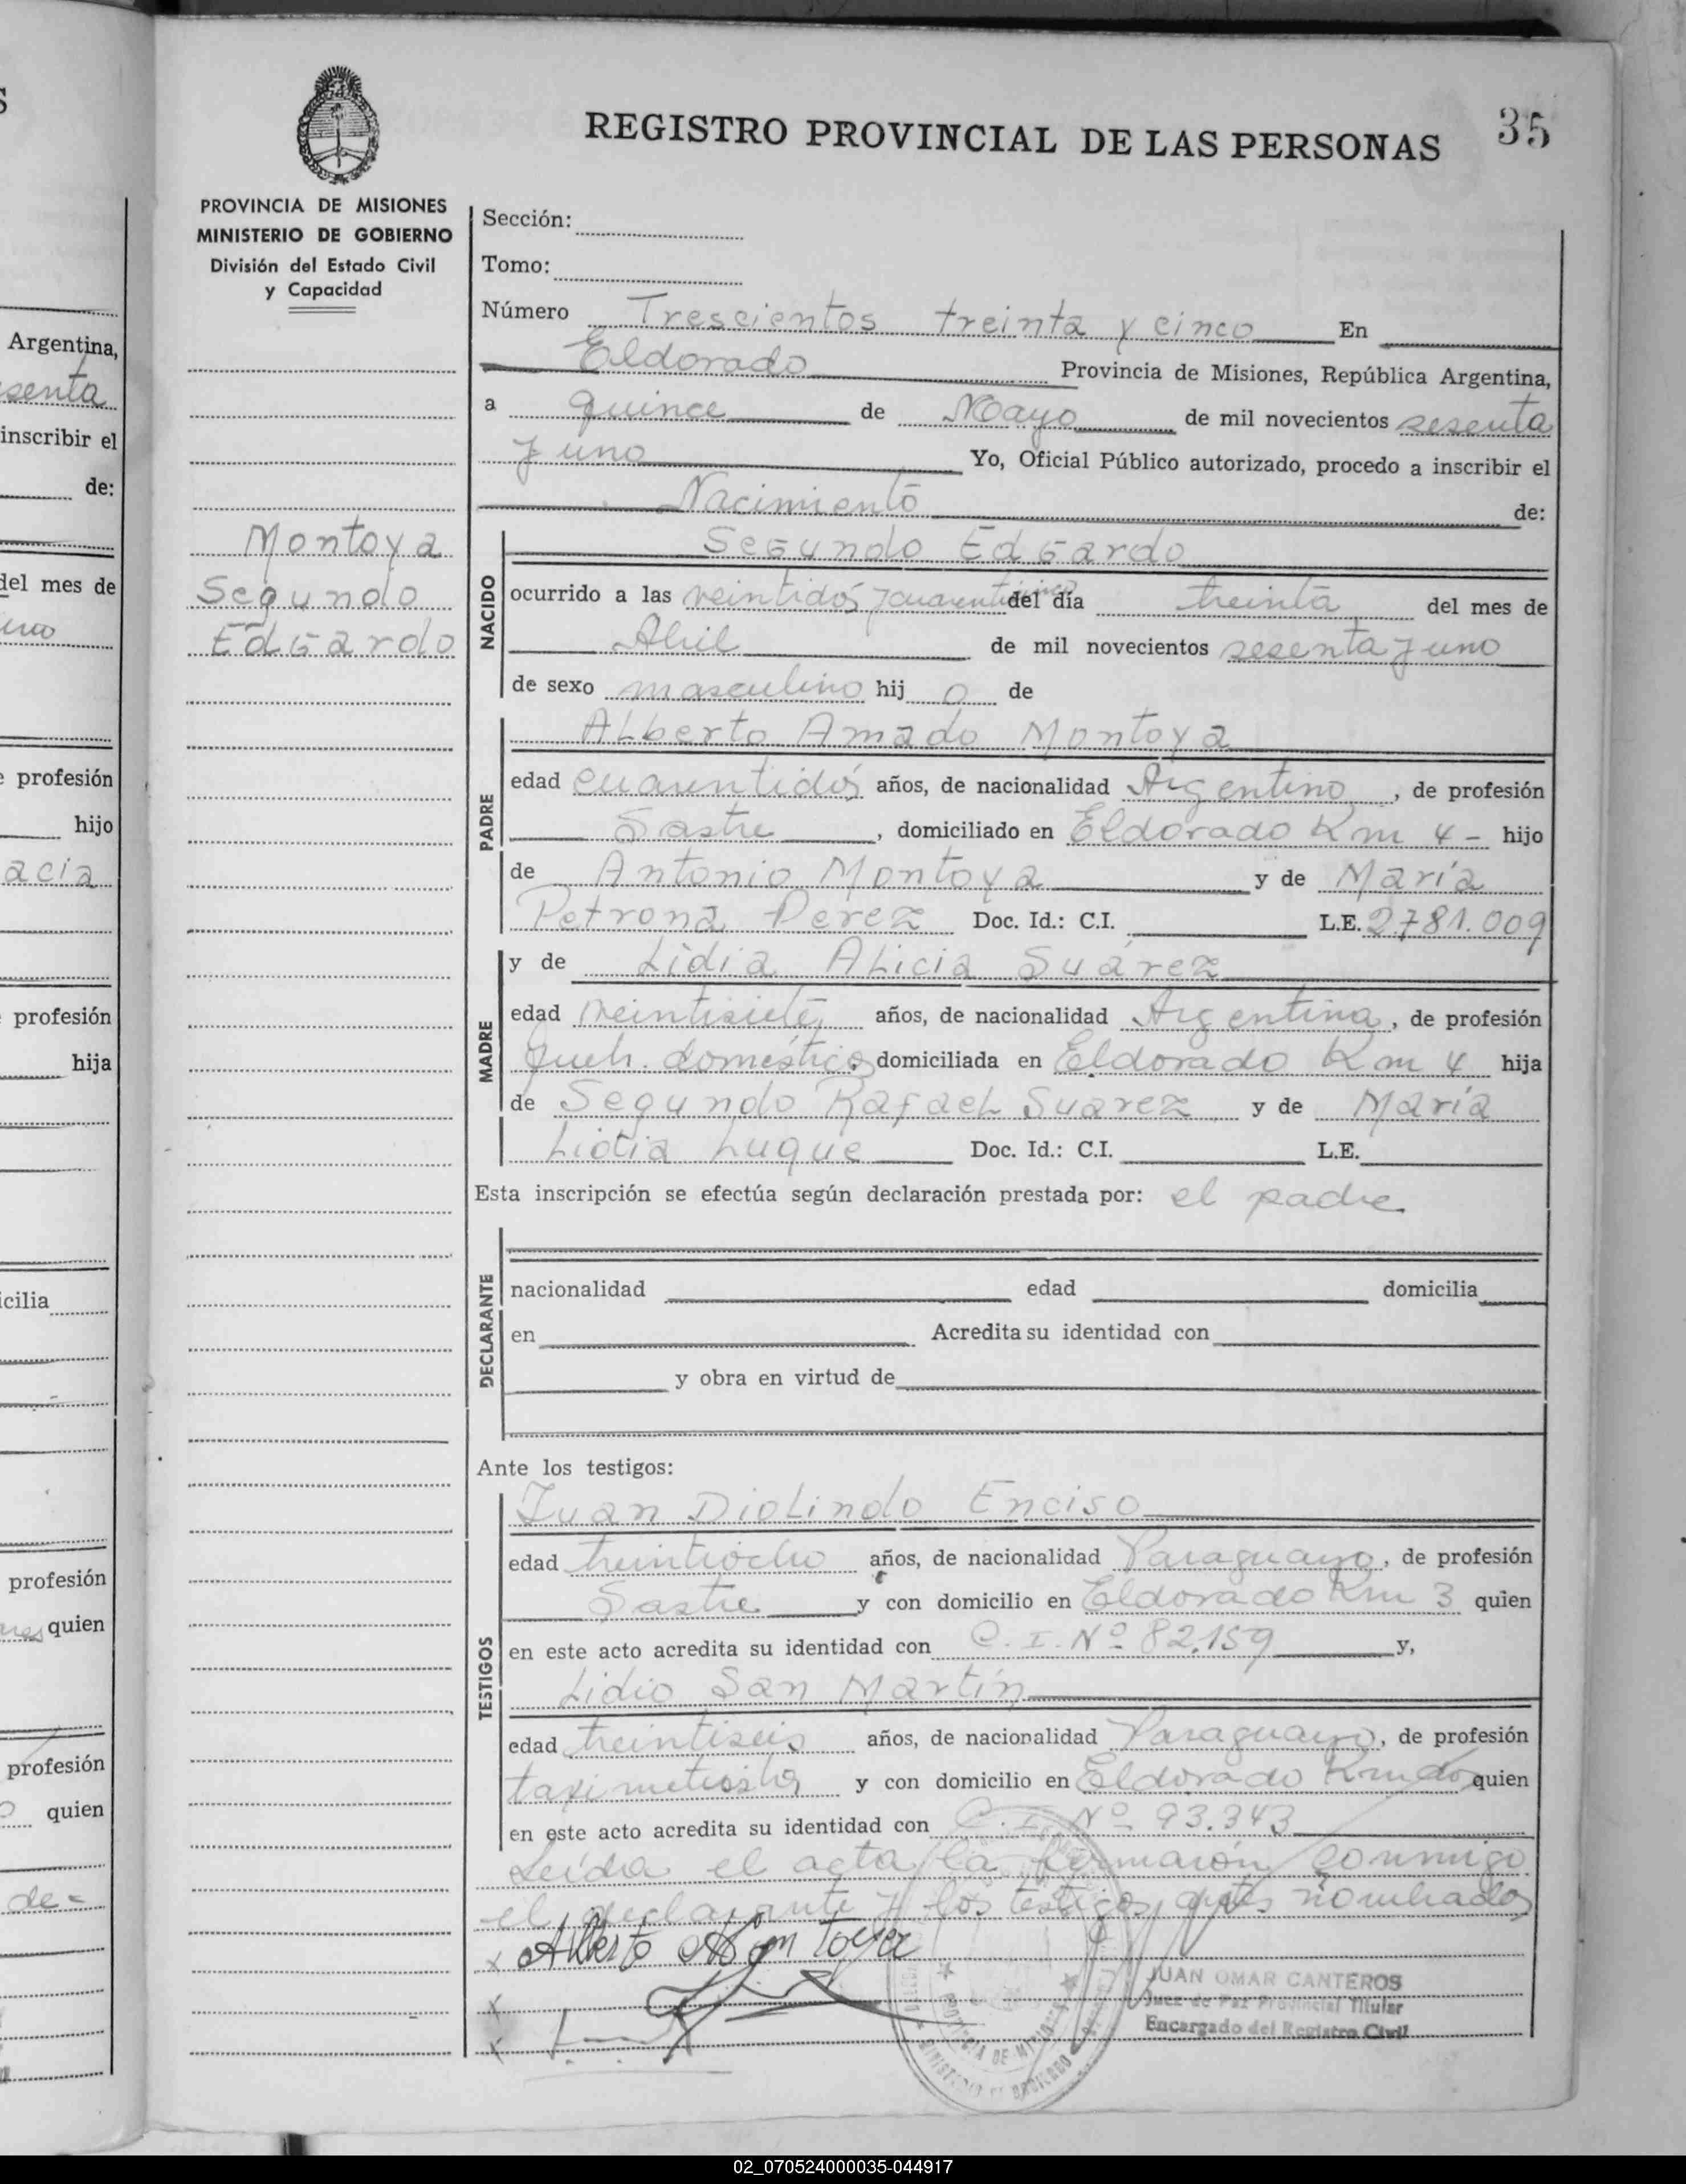 35
REGISTRO PROVINCIAL DE LAS PERSONAS
PROVINCIA DE MISIONES
MINISTERIO DE GOBIERNO
División del Estado Civil
y Capacidad
Montoya
Segundo
Edgardo
Sección:
Tomo:
Número Trescientos treinta y cinco En
Eldorado Provincia de Misiones, República Argentina,
a quince de Mayo de mil novecientos sesenta
y uno Yo, Oficial Público autorizado, procedo a inscribir el
Nacimiento de:
NACIDO
Segundo Edgardo
ocurrido a las veintidós y cuarenticinco del día treinta del mes de
Abril de mil novecientos sesenta y uno
de sexo masculino hij o de
PADRE
Alberto Amado Montoya
edad cuarentidós años, de nacionalidad Argentino, de profesión
Sastre, domiciliado en Eldorado Km 4 - hijo
de Antonio Montoya y de María
Petrona Perez Doc. Id.: C.I. L.E. 2781.009
MADRE
y de Lidia Alicia Suárez
edad veintisiete, años, de nacionalidad Argentina, de profesión
queh. domésticos domiciliada en Eldorado Km 4 hija
de Segundo Rafael Suarez y de María
Luque Doc. Id.: C.I. L.E.
Esta inscripción se efectúa según declaración prestada por: el padre
DECLARANTE
nacionalidad edad domicilia
en Acredita su identidad con
y obra en virtud de
Ante los testigos:
TESTIGOS
Juan Diolindo Enciso
edad treintiocho años, de nacionalidad Paraguayo, de profesión
Sastre y con domicilio en Eldorado Km 3 quien
en este acto acredita su identidad con C. I. Nº 82.159 y,
Lidio San Martín
edad treintiseis años, de nacionalidad Paraguayo, de profesión
taximetrista y con domicilio en Eldorado Km dos quien
en este acto acredita su identidad con C. I. Nº 93.343
Leída el acta la firmarón conmigo
el declarante y los testigos antes nombrados
x Alberto A Montoya
x
x
JUAN OMAR CANTEROS
Juez de Paz Provincial Titular
Encargado del Registro Civil
PROVINCIA DE MISIONES
MINISTERIO DE GOBIERNO
S
Argentina,
senta
inscribir el
de:
del mes de
profesión
hijo
acia
profesión
hija
icilia
profesión
quien
profesión
quien
de-
02_070524000035-044917